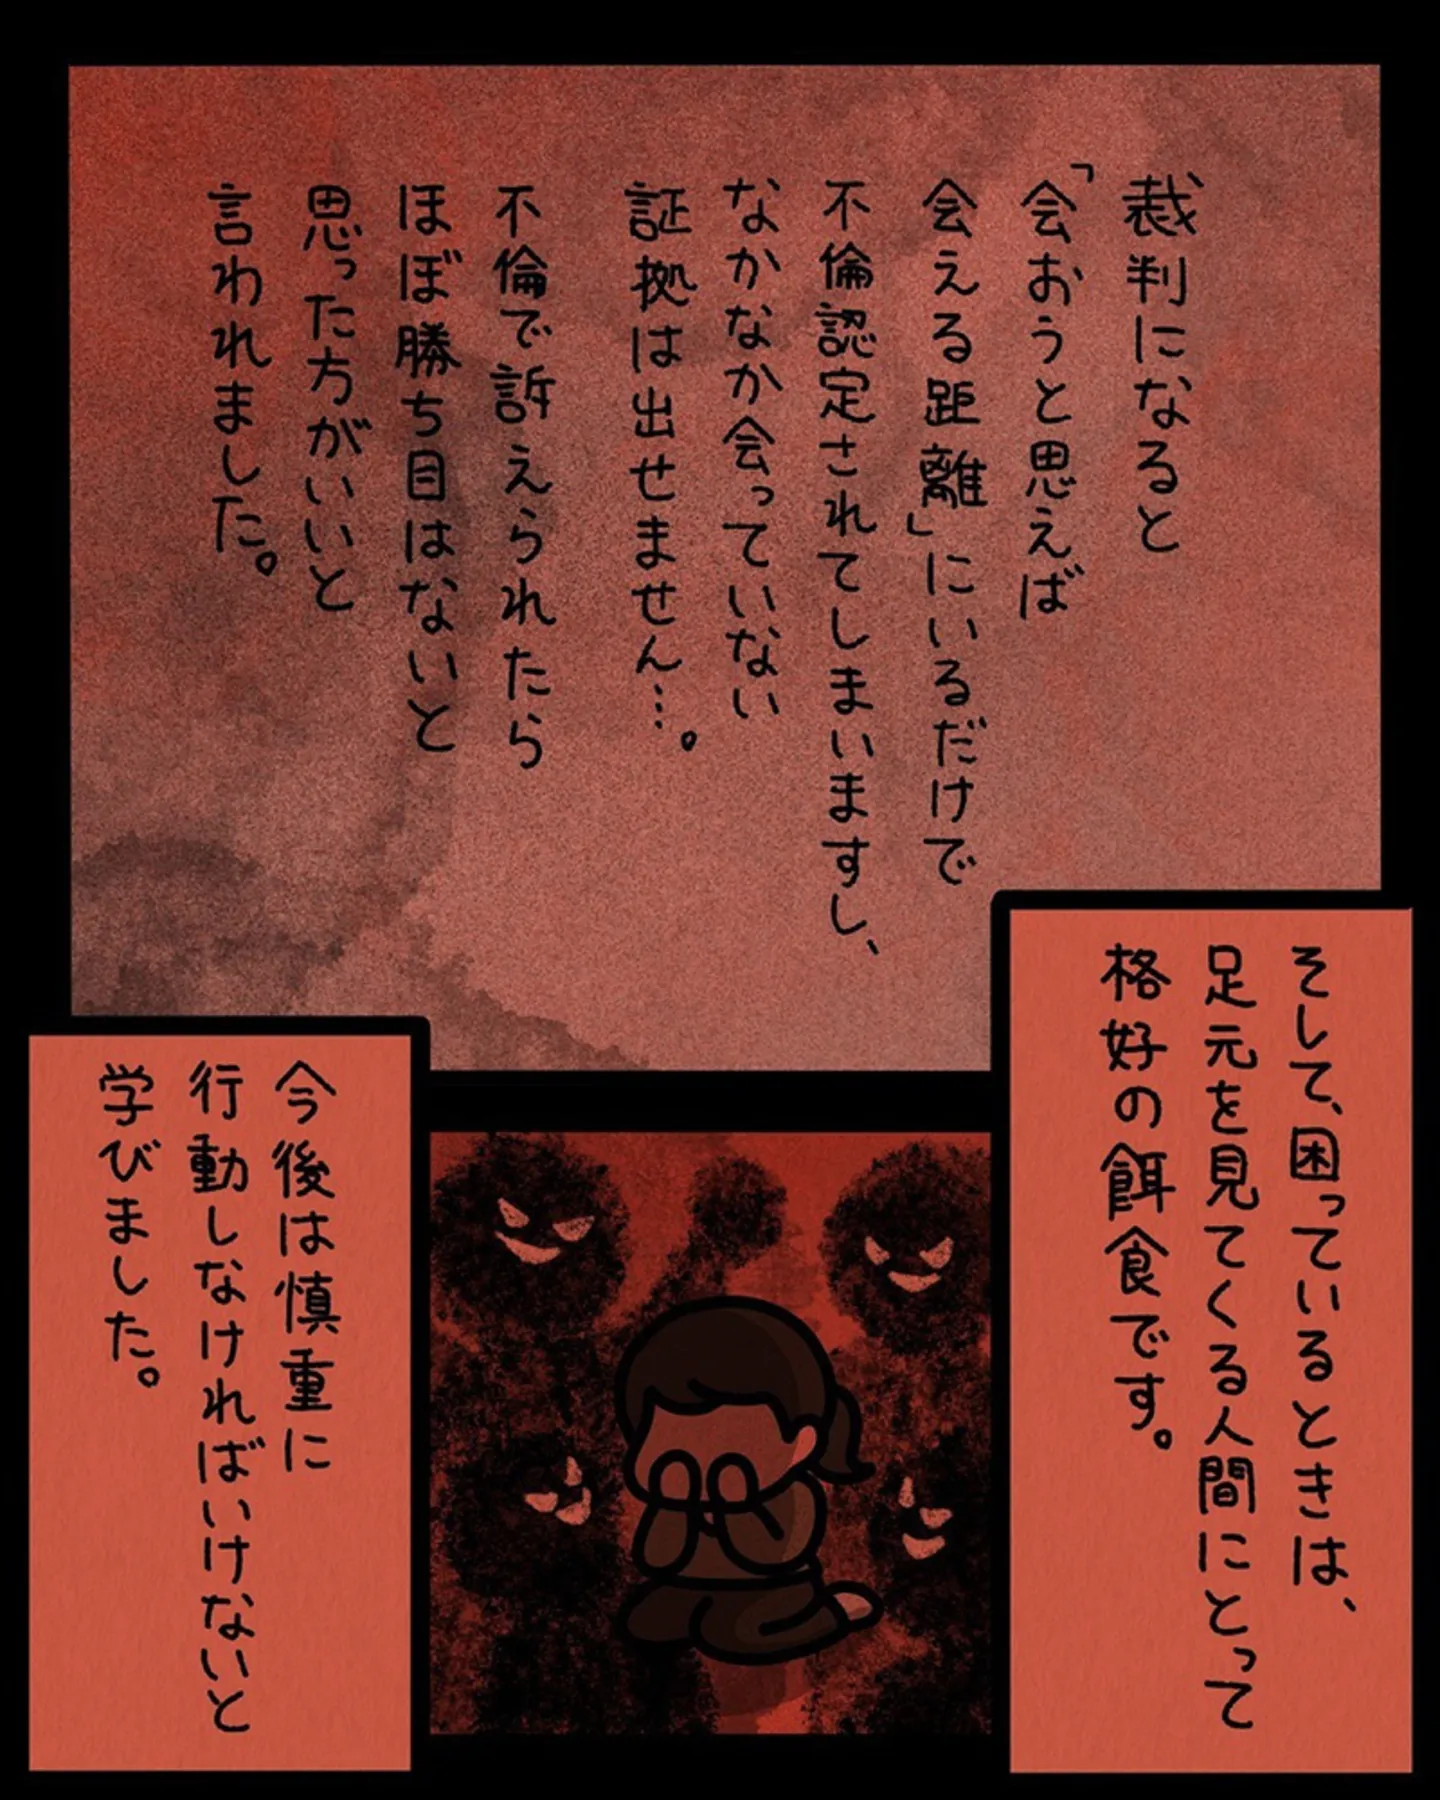 裁判になると
「会おうと思えば
会える距離」にいるだけで
不倫認定されてしまいますし、
なかなか会っていない
証拠は出せません…。
不倫で訴えられたら
ほぼ勝ち目はないと
思った方がいいと
言われました。
そして、困っているときは、
足元を見てくる人間にとって
格好の餌食です。
今後は慎重に
行動しなければいけないと
学びました。